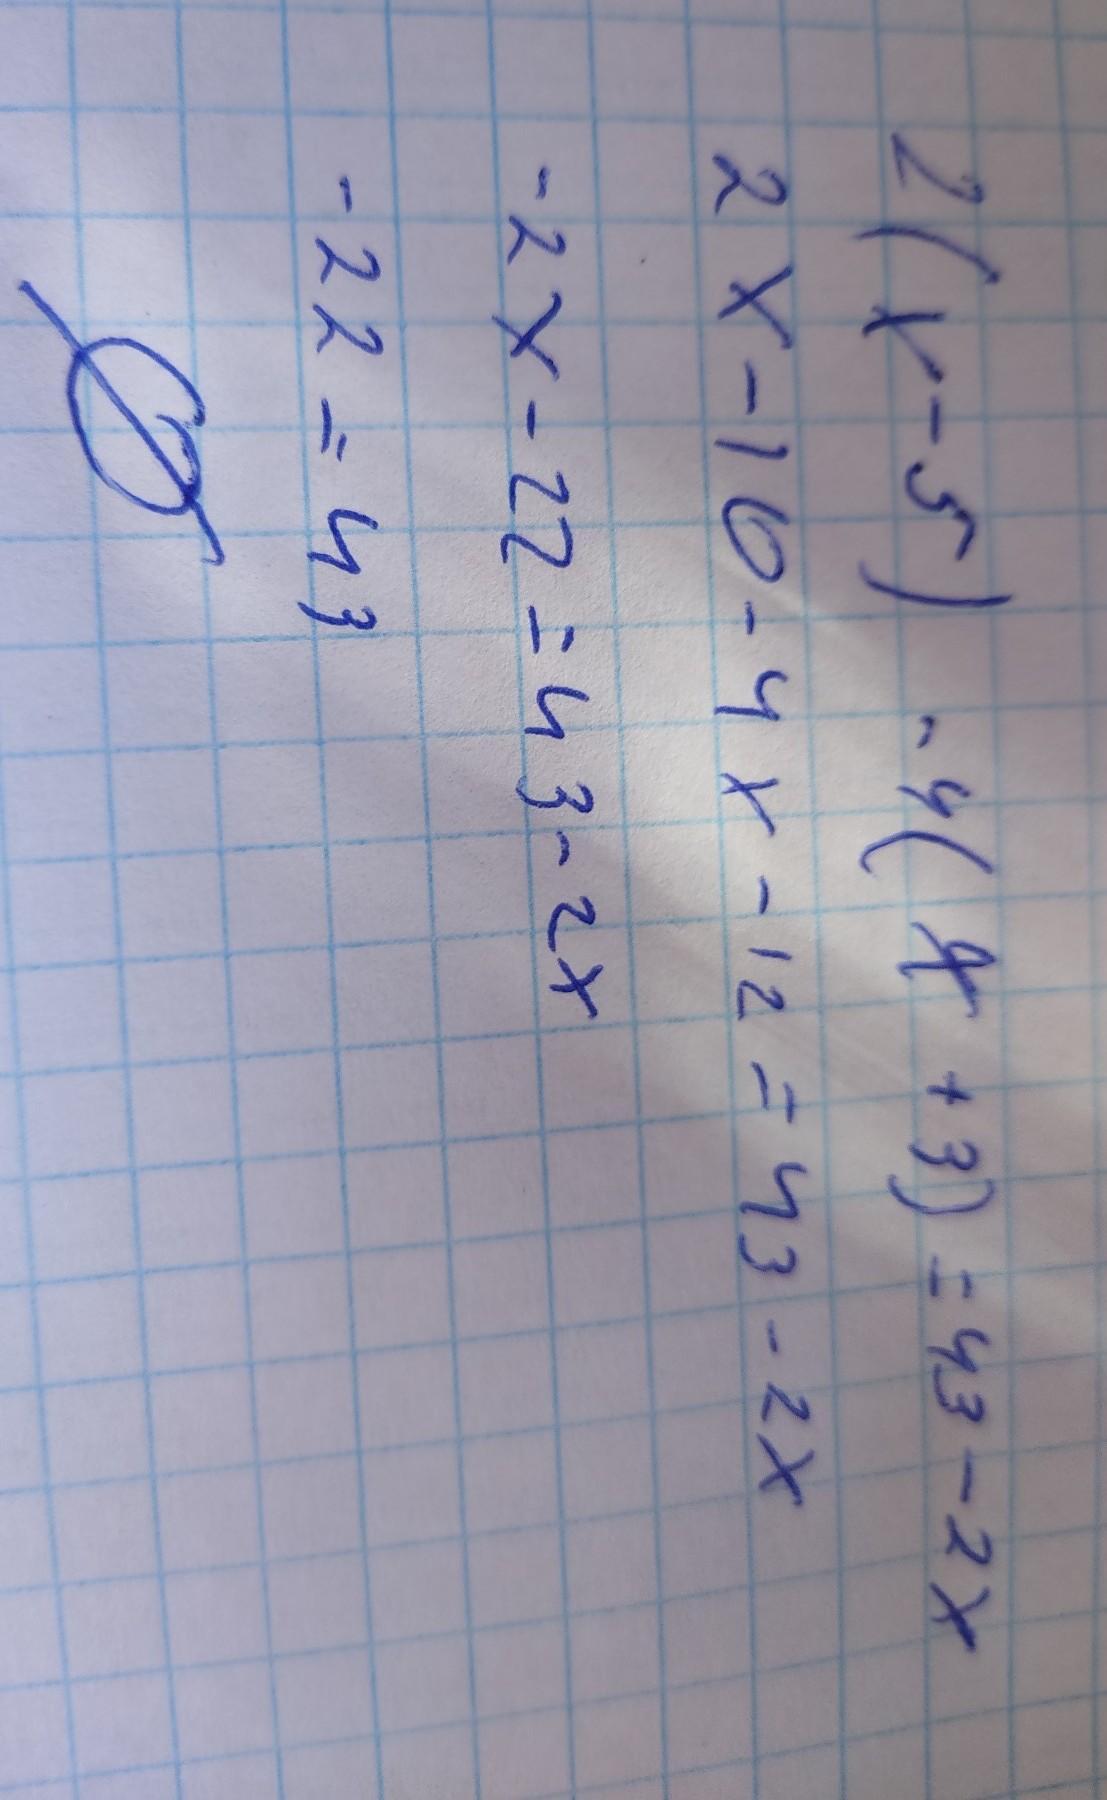 2(x-5) -4(x +3)=43-2x
2x-10-4x-12=43-2x
-2x-22=43-2x
-22=43
∅